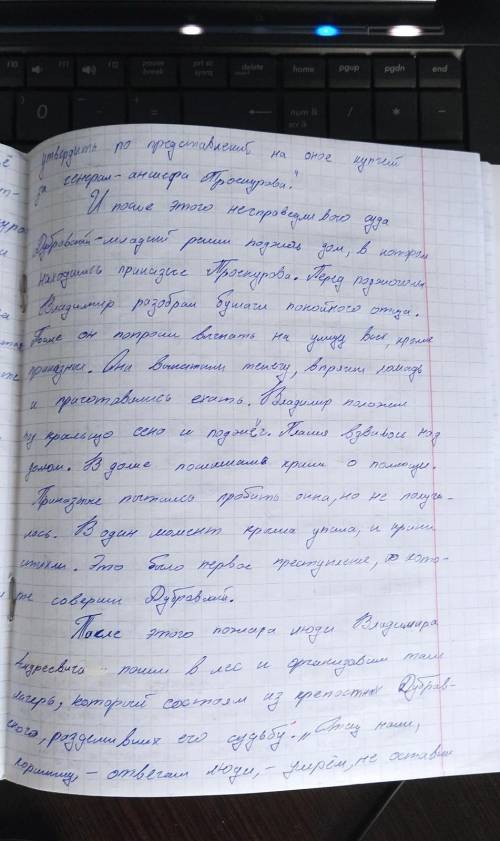 f10
f11
f12
pause
break
prt sc
sysrq
delete
home
pgup
pgdn
end
0
-
+
num lk
/
*
-
утвердить по представлений на оное купчей
за генерал-аншефа Проскурова."
И после этого несправедливого суда
Дубровский-младший решил поджечь дом, в котором
находились приказные Проскурова. Перед поджогом
Владимир разобрал бумаги покойного отца.
После он попросил выгнать на улицу всех, кроме
приказных. Они выкатили телегу, впрягли лошадь
и приготовились ехать. Владимир положил
ну крыльцо сено и поджёг. Пламя взвилось над
домом. В доме послышались крики о помощи.
Приказные пытались пробить окна, но не получи-
лось. В один момент крыша упала, и крики
стихли. Это было первое преступление, кото-
рое совершил Дубровский.
После этого пожара люди Владимира
Андреевича пошли в лес и организовали там
лагерь, который состоял из крепостных Дубров-
ского, разделивших его судьбу. „Отец наш,
кормилец, - отвечали люди, - умрём, не оставим